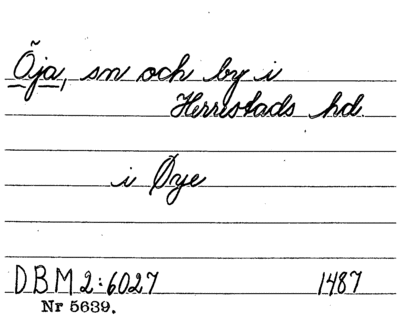 Öja, sn och by i
Herrestads hd.
i Øye
DBM 2:6027 1487
Nr 5639.